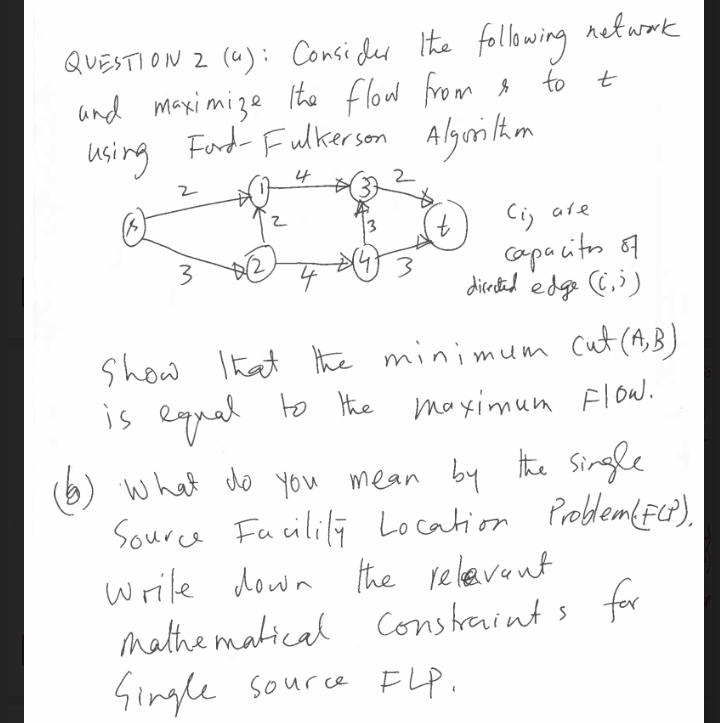 QUESTION 2 (a): Consider the following network
and maximize the flow from s to t
using Ford-Fulkerson Algorithm
2 1 4 3 2
s 2 3 t
3 2 4 4 3
Cij are
capacities of
directed edge (i,j)
Show that the minimum cut (A,B)
is equal to the maximum Flow.
(b) What do you mean by the single
Source Facility Location Problem (FLP).
Write down the relevant
mathematical constraints for
Single source FLP.